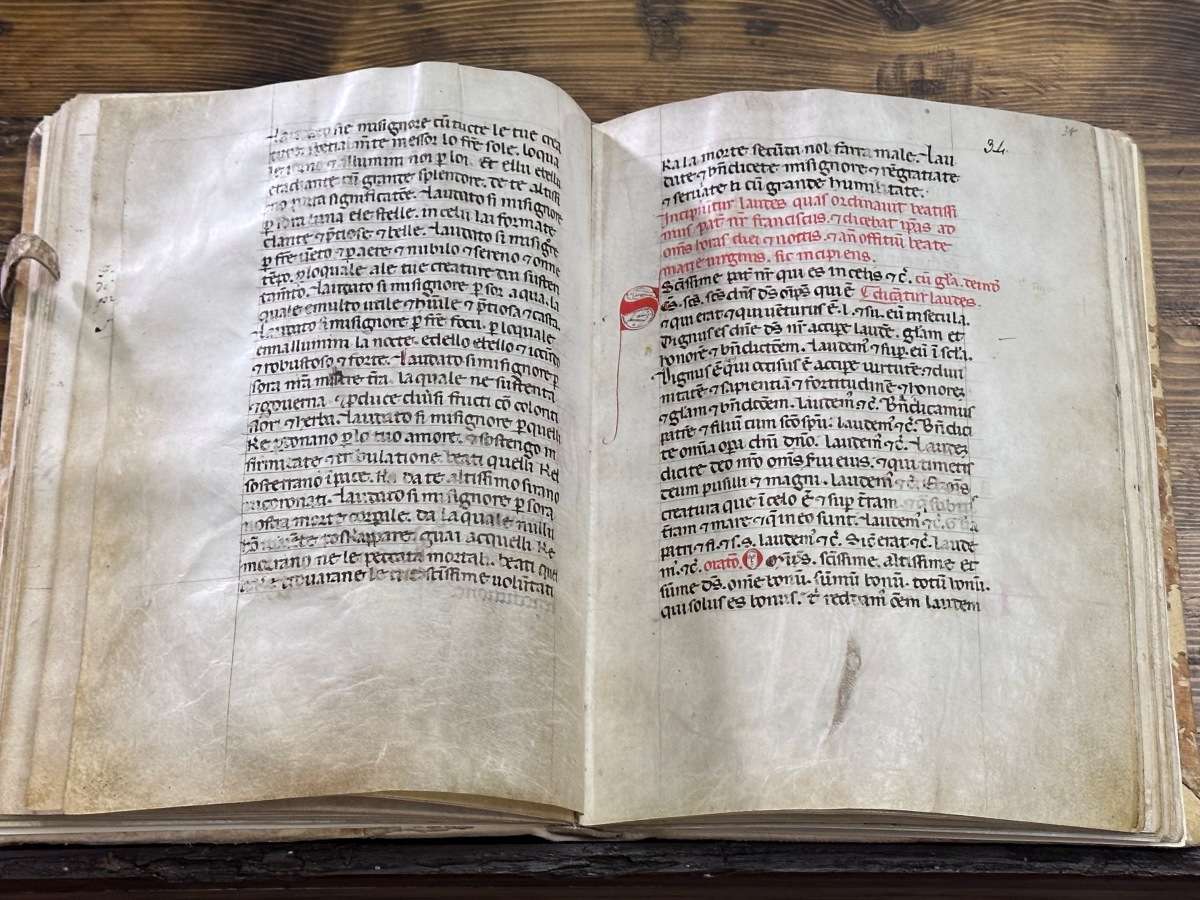 Laudato sie misignore cū tucte le tue crea
ture. spetialmēte messor lo frē sole. loqua
le iorno ⁊ allumini noi ꝑ loi. Et ellu ebellu
eradiante cū grande splendore. de te altissi
mo porta significatōe. Laudato si misignore
ꝑ sora luna ele stelle. in celu lai formate
clarite ⁊ ꝑtiose ⁊ belle. Laudato si misigre
ꝑ frē uēto ⁊ ꝑ aere ⁊ nubilo ⁊ sereno ⁊ onne
tēpo. ꝑloquale ale tue creature dai susten
tamēto. Laudato si misignore ꝑ sor aqua. la
quale emulto utile ⁊ hūile ⁊ ꝑtiosa ⁊ casta.
Laudato si misignore ꝑ frē focu. ꝑ loquale
ennallumini la nocte. edello ebello ⁊ iocūdo
⁊ robustoso ⁊ forte. Laudato si misignore ꝑ
sora nrā matre trra. laquale ne sustenta
⁊ gouerna. ⁊ ꝓduce diuſi fructi cō coloriti
flori ⁊ herba. Laudato si misignore ꝑ quelli
ke ꝑdonano ꝑ lo tuo amore. ⁊ sostengo in
firmitate ⁊ tribulatione. beati quelli ke l
sosterrano ī pace. ka da te altissimo sirano
incoronati. Laudato si misignore ꝑ sora
nostra morte corpale. da laquale nullu
skappare. guai acquelli ke
morrano ne le peccata mortali. beati queli
ke trouarane le tue scīssime uoluntati
34
34
Ka la morte secūda nol farra male. Lau
date ⁊ bn̄dicete misignore ⁊ rēgratiate
⁊ seruate li cū grande humilitate.
Incipiūtur laudes quas ordinauit beatissi
mus pat̄ nr̄ franciscus. ⁊ dicebat ip̄as ad
om̄s horas diei ⁊ noctis. ⁊ añ offitiū beate
marie uirginis. sic incipiens.
Scīssime pat̄ nr̄ qui es in celis ⁊ c̄. cū gl̄a. deinō
Sc̄s. sc̄s. sc̄s dn̄s ds̄ omp̄s qui ē dicātur laudes.
⁊ qui erat ⁊ qui uēturus ē. l. ⁊ su. eū in secula.
Dignus es dn̄e ds̄ nr̄ accipe laudē. glam et
honorē ⁊ bn̄dictōem. Laudem̄ ⁊ suꝑ. eū ī scl̄a.
Dignus ē agn̄ qui occisus ē accipe uirtutē ⁊ diui
nitatē ⁊ sapientiā ⁊ fortitudinē ⁊ honorē
⁊ glam ⁊ bn̄dictōem. Laudem̄ ⁊ c̄. Bn̄dicamus
patrē ⁊ filiū cum sc̄o spū. laudem̄ ⁊ c̄. Bn̄dici
te omīa oꝑa dn̄i dn̄o. Laudem̄ ⁊ c̄. Laudē
dicite deo nr̄o om̄s ſui eius. ⁊ qui timetis
deum pusilli ⁊ magni. Laudem̄ ⁊ c̄.
creatura que ī celo ē ⁊ suꝑ trram.
trram ⁊ mare ⁊ q̄ in eo sunt. Laudem̄ ⁊ c̄. Gl̄a
patri ⁊ fi. ⁊ s. s. laudem̄ ⁊ c̄. Sic̄ erat ⁊ c̄. laude
m̄. ⁊ c̄. oratō. Omp̄s. scīssime. altissime et
sūme ds̄. om̄e bonū. sūmū bonū. totū bonū.
qui solus es bonus. t̄ reddam̄ ōem laudem